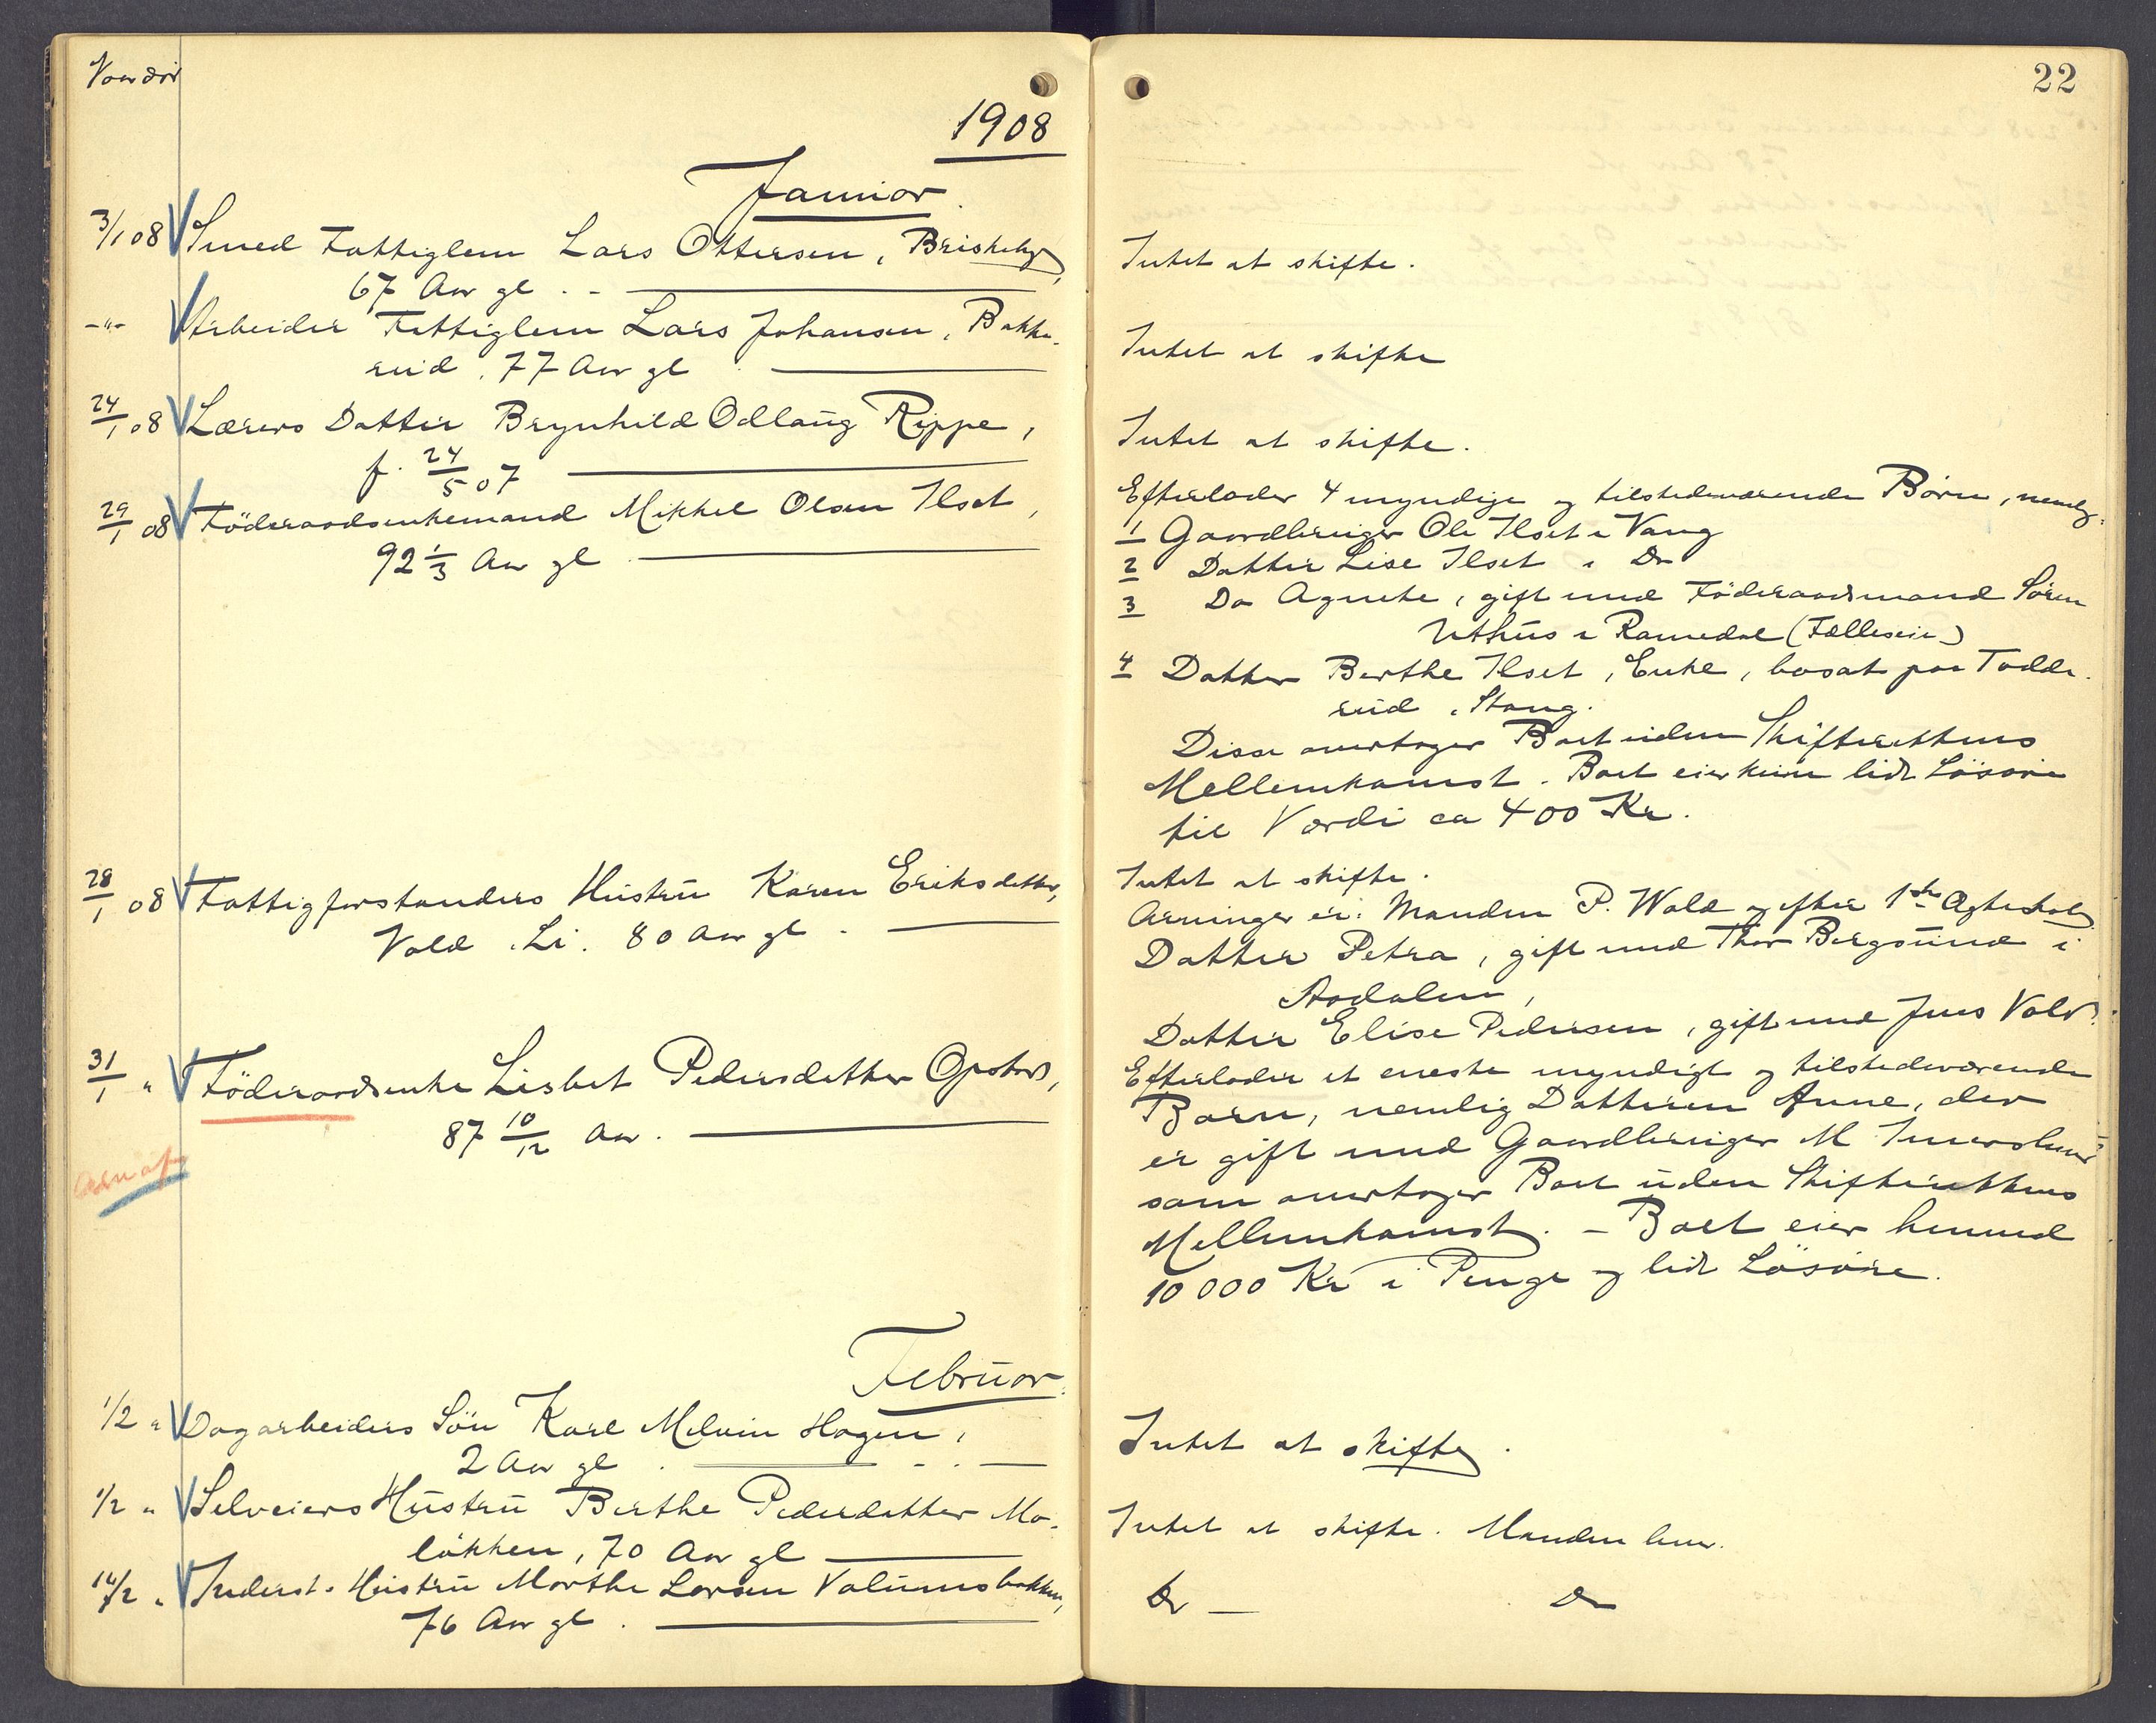 22
1908
Januar.
3/1 08 Smed Fattiglem Lars Ottersen, Briskeby,
67 Aar gl. -
-"- Arbeider Fattiglem Lars Johansen, Bakke-
rud, 77 Aar gl
24/1 08 Lærers Datter Brynhild Odlaug Rippe,
f. 24/5 07
29/1 08 Föderaadsenkemand Mikkel Olsen Ilset,
92 1/3 Aar gl
28/1 08 Fattigforstanders Hustru Karen Eriksdatter,
Vold, Li. 80 Aar gl.
31/1 " Föderaadsenke Lisbet Pedersdatter Opstad,
87 10/12 Aar.
Arveaf
Februar.
1/2 " Dagarbeiders Sön Karl Melvin Hagen,
2 Aar gl.
1/2 " Selveiers Hustru Berthe Pedersdatter Mo-
løkken, 70 Aar gl
/2 " Inderst. Hustru Marthe Larsen Valumsbakken,
76 Aar gl.
Intet at skifte.
Intet at skifte
Intet at skifte.
Efterlader 4 myndige og tilstedeværende Børn, nemlig:
1 Gaardbruger Ole Ilset i Vang
2 Datter Lise Ilset i Do
3 Do Agnethe, gift med Föderaadsmand Søren
Uthus i Romedal (Fælleseie)
4 Datter Berthe Ilset, Enke, bosat paa Todde-
rud, Stang.
Disse overtager Boet uden Skifterettens
Mellemkomst. Boet eier kun lidt Løsøre
til Værdi ca 400 Kr.
Intet at skifte.
Arvinger er: Manden P. Wold og efter 1ste Ægteskab
Datter Petra, gift med Thor Bergsund i
Aadalen,
Datter Elise Pedersen, gift med Jens Vold.
Efterlader et eneste myndigt og tilstedeværende
Barn, nemlig Datteren Anne, der
er gift med Gaardbruger M
som overtager Boet uden Skifterettens
Mellemkomst. - Boet eier henved
10 000 Kr i Penge og lidt Løsøre.
Intet at skifte.
Intet at skifte. Manden lever.
Do - Do